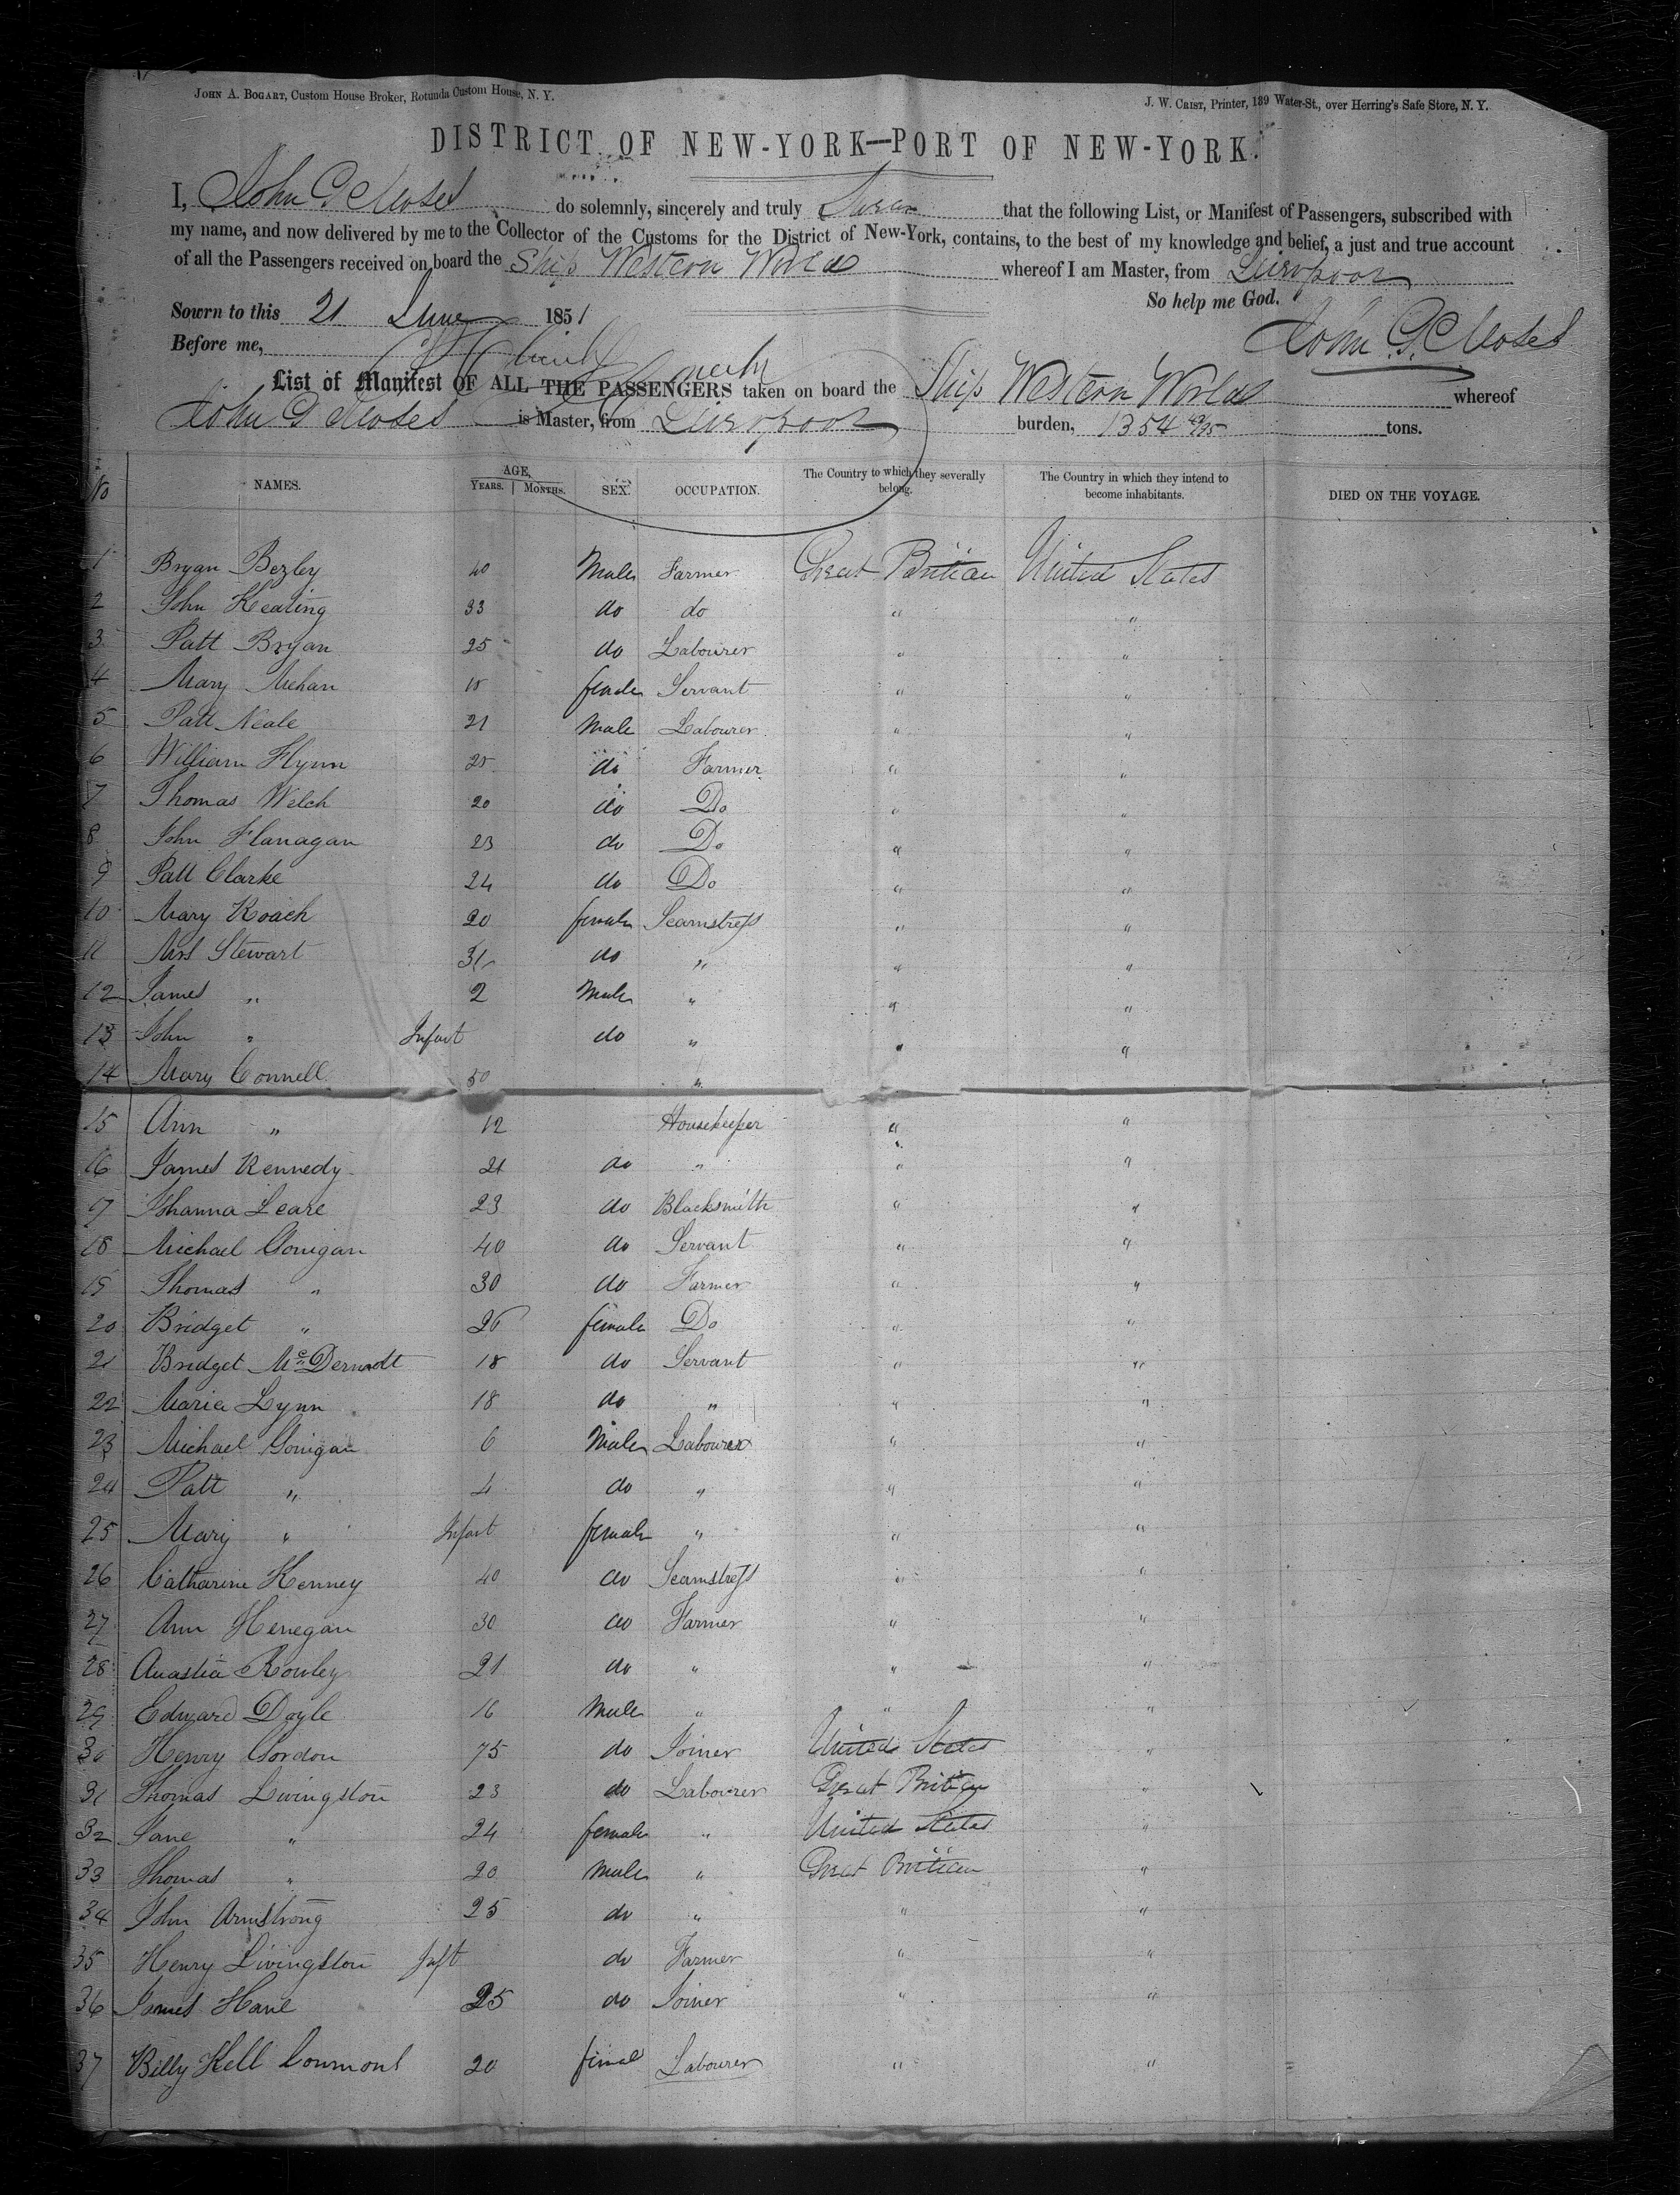 JOHN A. BOGART, Custom House Broker, Rotunda Custom House, N. Y.
J. W. CRIST, Printer, 139 Water-St., over Herring's Safe Store, N. Y.
DISTRICT OF NEW-YORK—PORT OF NEW-YORK.
I, John G Moses do solemnly, sincerely and truly Swear that the following List, or Manifest of Passengers, subscribed with
my name, and now delivered by me to the Collector of the Customs for the District of New-York, contains, to the best of my knowledge and belief, a just and true account
of all the Passengers received on board the Ship Western World whereof I am Master, from Liverpool
So help me God.
Sowrn to this 21 June 1851
John G. Moses
Before me,
List of Manifest OF ALL THE PASSENGERS taken on board the Ship Western World whereof
John G Moses is Master, from Liverpool burden, 1354 49/95 tons.
No NAMES. AGE. YEARS. MONTHS. SEX. OCCUPATION. The Country to which they severally belong. The Country in which they intend to become inhabitants. DIED ON THE VOYAGE.
1 Bryan Bezley 40 Male Farmer Great Britian United States
2 John Keating 33 do do " "
3 Patt Bryan 25 do Labourer " "
4 Mary Mehan 18 female Servant " "
5 Patt Neale 21 Male Labourer " "
6 William Flynn 25 do Farmer " "
7 Thomas Welch 20 do Do " "
8 John Flanagan 23 do Do " "
9 Patt Clarke 24 do Do " "
10 Mary Roach 20 female Seamstress " "
11 Mrs Stewart 31 do " " "
12 James " 2 Male " " "
13 John " Infant do " " "
14 Mary Connell 50 "
15 Ann " 12 Housekeeper " "
16 James Kennedy 21 do " " "
17 Johanna Leare 23 do Blacksmith " "
18 Michael Gonigan 40 do Servant " "
19 Thomas " 30 do Farmer " "
20 Bridget " 26 female Do " "
21 Bridget McDermodt 18 do Servant " "
22 Maria Lynn 18 do " " "
23 Michael Gonigan 6 Male Labourer " "
24 Patt " 4 do " " "
25 Mary " Infant female " " "
26 Catharine Kenney 40 do Seamstress " "
27 Ann Henegan 30 do Farmer " "
28 Anastia Rowley 21 do " " "
29 Edward Doyle 16 Male " " "
30 Henry Gordon 75 do Joiner United States "
31 Thomas Livingston 23 do Labourer Great Britian "
32 Jane " 24 female " United States "
33 Thomas " 20 Male " Great Britian "
34 John Armstrong 25 do " " "
35 Henry Livingston Inft do Farmer " "
36 James Hane 25 do Joiner " "
37 Billy Kell 20 femal Labourer " "